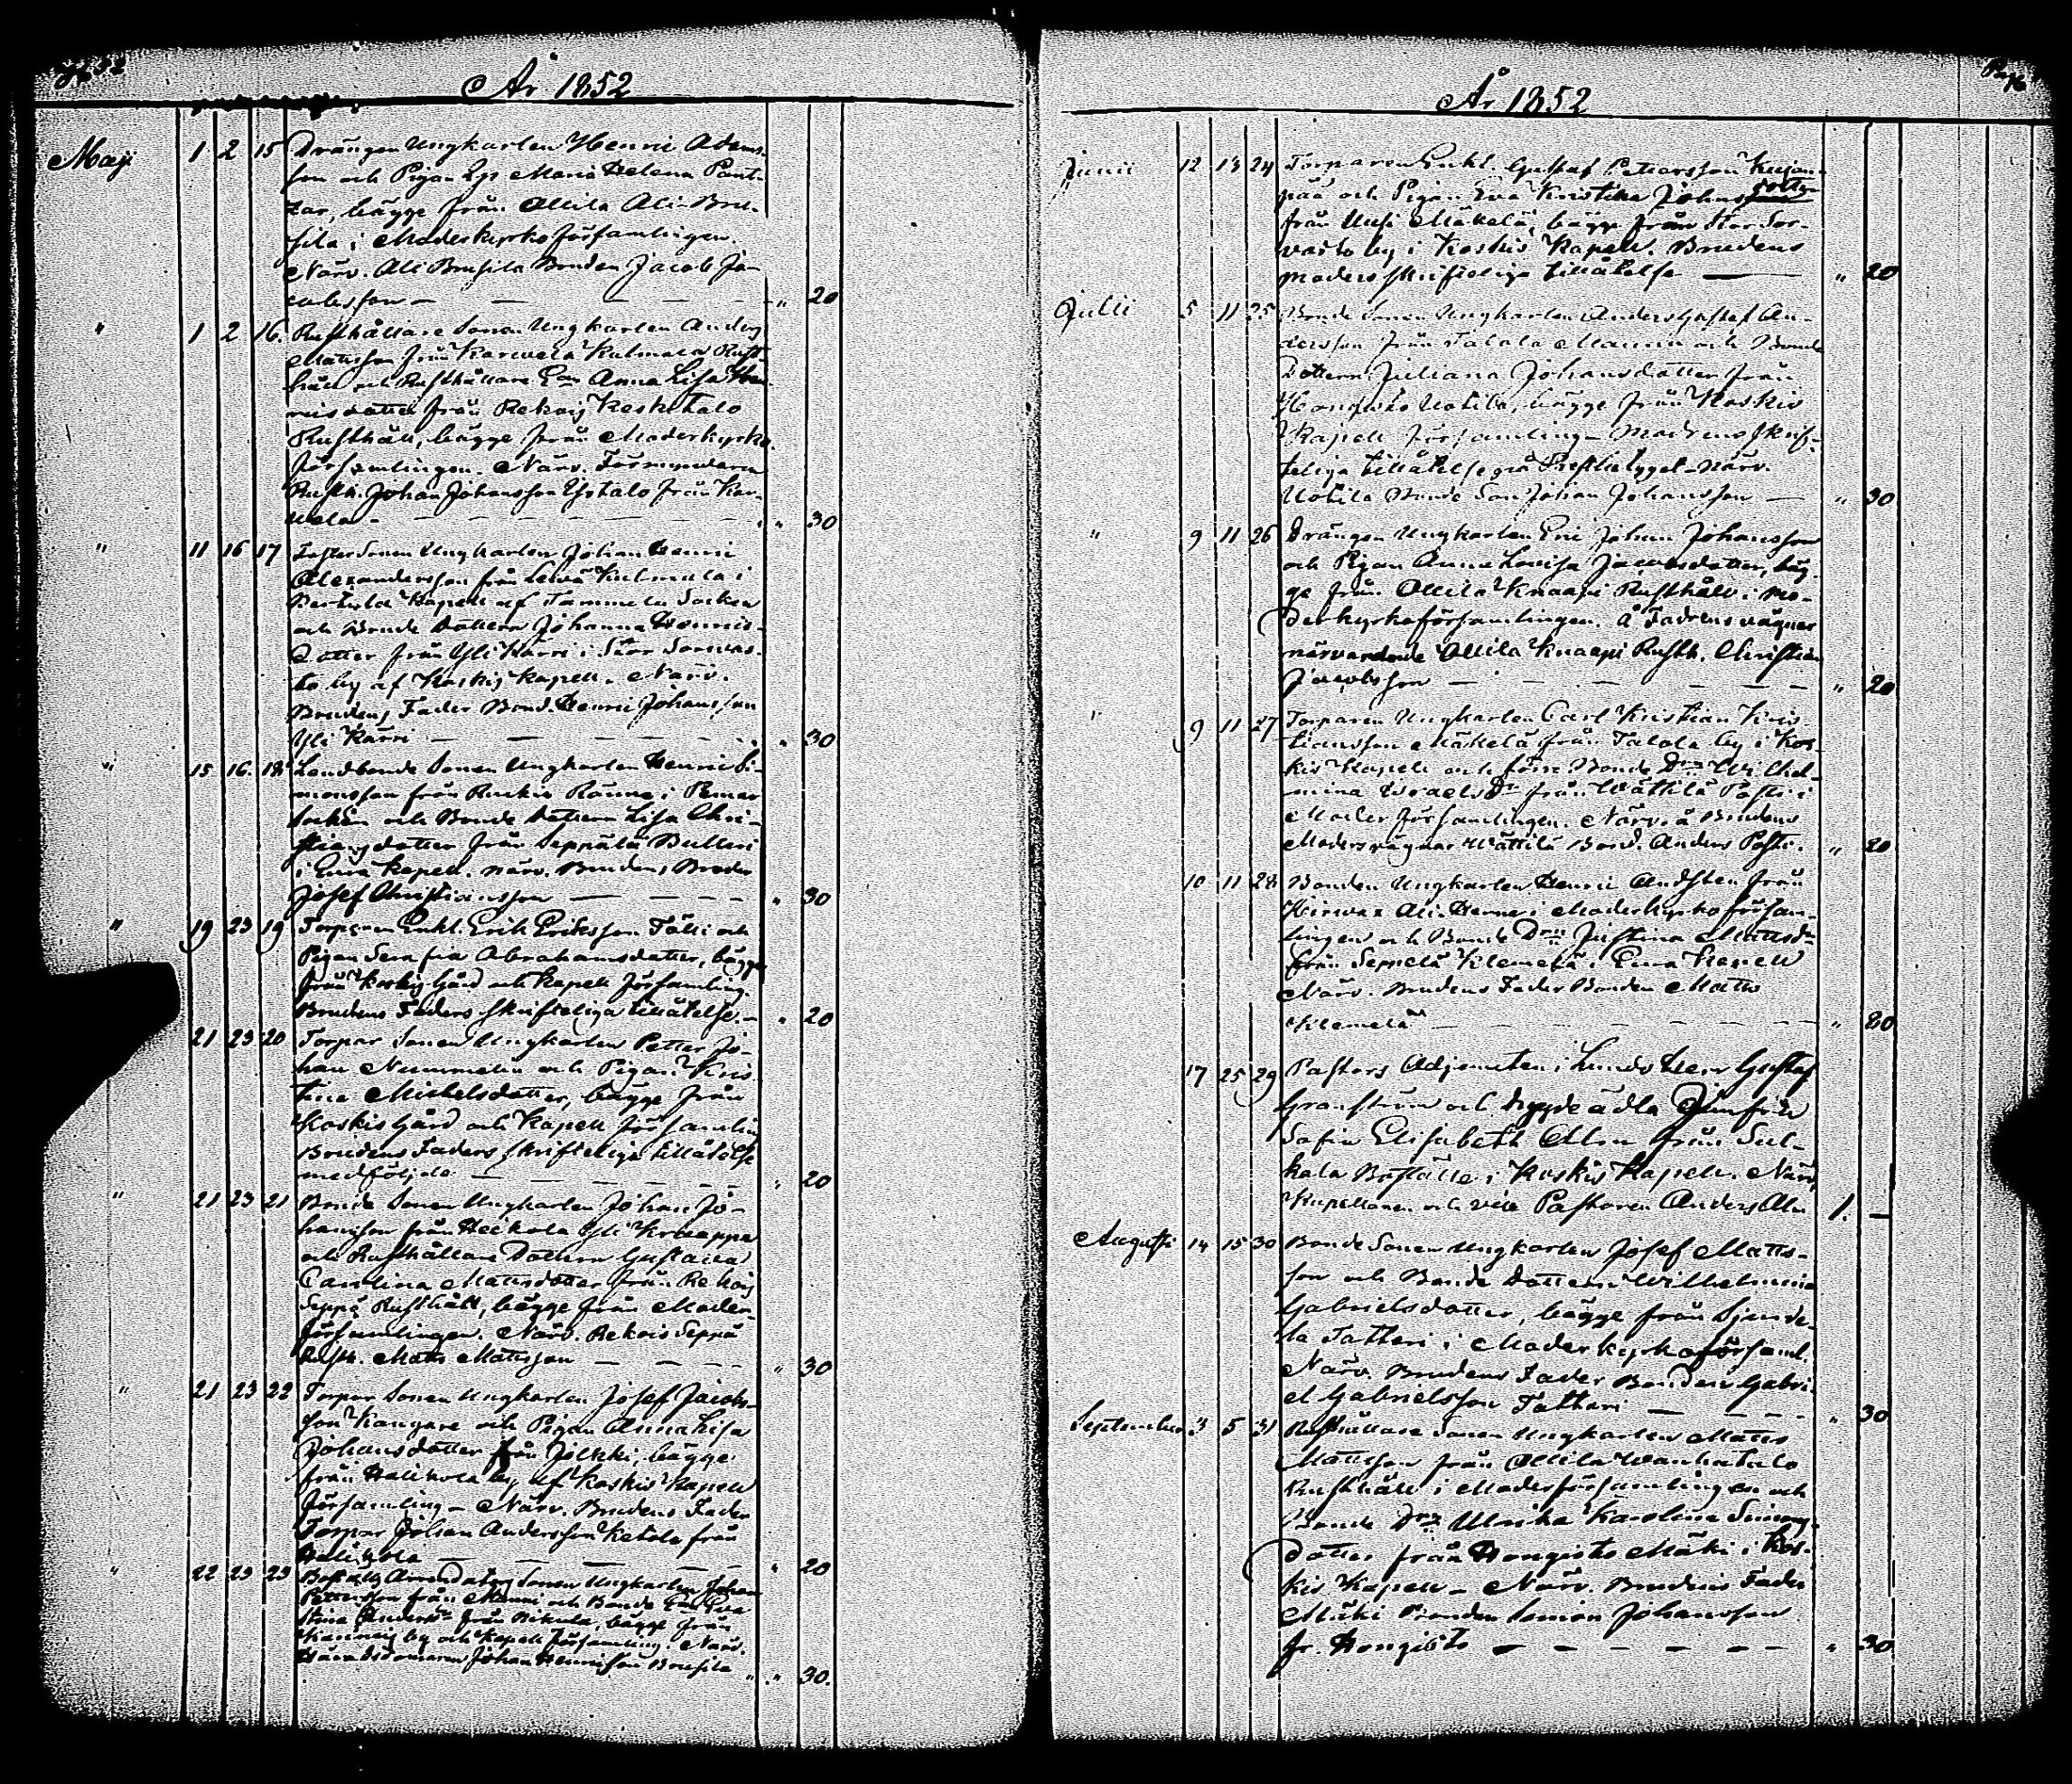 År 1852
Maji 1 2 15 Drängen Ungkarlen Henric Adams-
son och Pigan Maria Helena Pant-
zar, bägge från Ollila Ali-Bru-
sila i Moderkyrko församlingen.
Närv. Ali Brusila Bonden Jacob Ja-
cobsson — " 20
" 1 2 16. Rusthållare Sonen Ungkarlen Anders
Mattsson från Karwela Kulmala Rust-
håll och Rusthållare Anna Lisa Hen-
ricsdotter från Rekois Keskitalo
Rusthåll, bägge från Moderkyrko
församlingen. Närv. Förmyndaren
Rusth. Johan Johansson Ystalo från Kar-
wela — " 30
" 11 16 17 Sonen Ungkarlen Johan Henric
Alexandersson från Kulmala i
Kapell af Tammela Socken
och Bonde Dottern Johanna Henrics-
dotter från Yli Kärri i Stor Sorvas-
to by af Koskis Kapell. Närv.
Brudens Fader Bond. Henric Johansson
Yli Kärri — " 30
" 15 16. 18 Landbonde Sonen Ungkarlen Henric Si-
monsson från Ruskis i Pemar
Socken och Bonde Dottern Lisa Chri-
stiansdotter från Seppälä Bulleri
i Eura Kapell. Närv. Brudens Broder
Josef Christiansson — " 30
" 19 23 19 Torparen Enkl. Erik Eriksson Fälli och
Pigan Serafia Abrahamsdotter, bägge
från Koskis Gård och Kapell församling.
Brudens Faders skrifteliga tillåtelse. — " 20
21 23 20 Torpar Sonen Ungkarlen Petter Jo-
han Nummelin och Pigan Kris-
tina Michelsdotter, bägge från
Koskis Gård och Kapell församlin
Brudens Faders skrifteliga tillåtelse
medföljde — " 20
" 21 23 21 Bonde Sonen Ungkarlen Johan Jo-
hansson från Heikola Yli Knaappa
och Rusthållare Dottern Gustava
Carolina Mattsdotter från Rekois
Seppä Rusthåll, bägge från Moder-
församlingen. Närv. Rekois Seppä
Rusth. Matts Mattsson — " 30
" 21 23 22 Torpar Sonen Ungkarlen Josef Jacobs-
son Kangare och Pigan Anna Lisa
Johansdotter från Jilkki, bägge
från Halikola by af Koskis Kapell
församling — Närv. Brudens Fader
Torpar Johan Andersson Ketola från
Halikola — " 20
" 22 23 23 Sonen Ungkarlen Johan
Pettersson från Manni och Bonde Eva
Stina från bägge från
by och Kapell församling. Närv.
Häradsdomaren Johan Henricsson Brusila " " 30.
År 1852
Junii 12 13 24 Torparen Enkl. Gustaf Pettersson Kujan-
pää och Pigan Eva Kristina Johansdotter
från Uusi Mäkelä, bägge från Stor Sor-
vasto by i Koskis Kapell. Brudens
moders skrifteliga tillåtelse — " 20
Julii 5 11 25 Bonde Sonen Ungkarlen Anders Gustaf An-
dersson från Talola Mannin och Bonde
Dottern Juliana Johansdotter från
Hongisto Uotila, bägge från Koskis
Kapell församling — Modrens skrif-
teliga tillåtelse på — närv.
Uotila Bonde Son Johan Johansson — " 30
" 9 11 26 Drängen Ungkarlen Eric Johan Johansson
och Pigan Anna Lovisa Jacobsdotter, bäg-
ge från Ollila Knaapi Rusthåll i Mo-
derkyrkoförsamlingen. Å Fadrens vägnar
närvarande Ollila Knaapi Rusth. Christian
Jacobsson — " 20
" 9 11 27 Torparen Ungkarlen Carl Kristian Kris-
tiansson Mäkelä från Talola by i Kos-
kis Kapell och förre Bonde Drn Wilhel-
mina Israels Dr från Wättilä Påsti i
Moder församlingen. Närv. å Brudens
Moders vägnar Wättilä Bond. Anders Påsti. " 20
10 11 28 Bonden Ungkarlen Henric Andsten från
Hirwax Ali-Henne i Moderkyrko försam-
lingen och Bonde Drn Justina Mattsdr
från Seppelä Klemelä i Eura Kapell
Närv. Brudens Fader Bonden Matts
Klemelä — " 20
17 25 29 Pastors Adjuncten i Lundo Herr Gustaf
Granström och Dygdeädla Jungfru
Sofia Elisabeth Alm från Sul-
kala Boställe i Koskis Kapell. Närv.
Kapellanen och vice Pastoren Anders Alm 1. —
Augusti 14 15 30 Bonde Sonen Ungkarlen Josef Matts-
son och Bonde Dottern Wilhelmina
Gabrielsdotter, bägge från Sjände-
la Tattari i Moderkyrkoförsaml.
Närv. Brudens Fader Bonden Gabri-
el Gabrielsson Tattari — " 30
September 3 5 31 Rusthållare Sonen Ungkarlen Matts
Mattsson från Ollila Wanhatalo
Rusthåll i Moderförsamlingen och
Bonde Drn Ulrika Karolina Simons-
dotter från Hongisto Mäki i Kos-
kis Kapell — Närv. Brudens Fader
Mäki Bonden Simon Johansson
fr. Hongisto — " 30